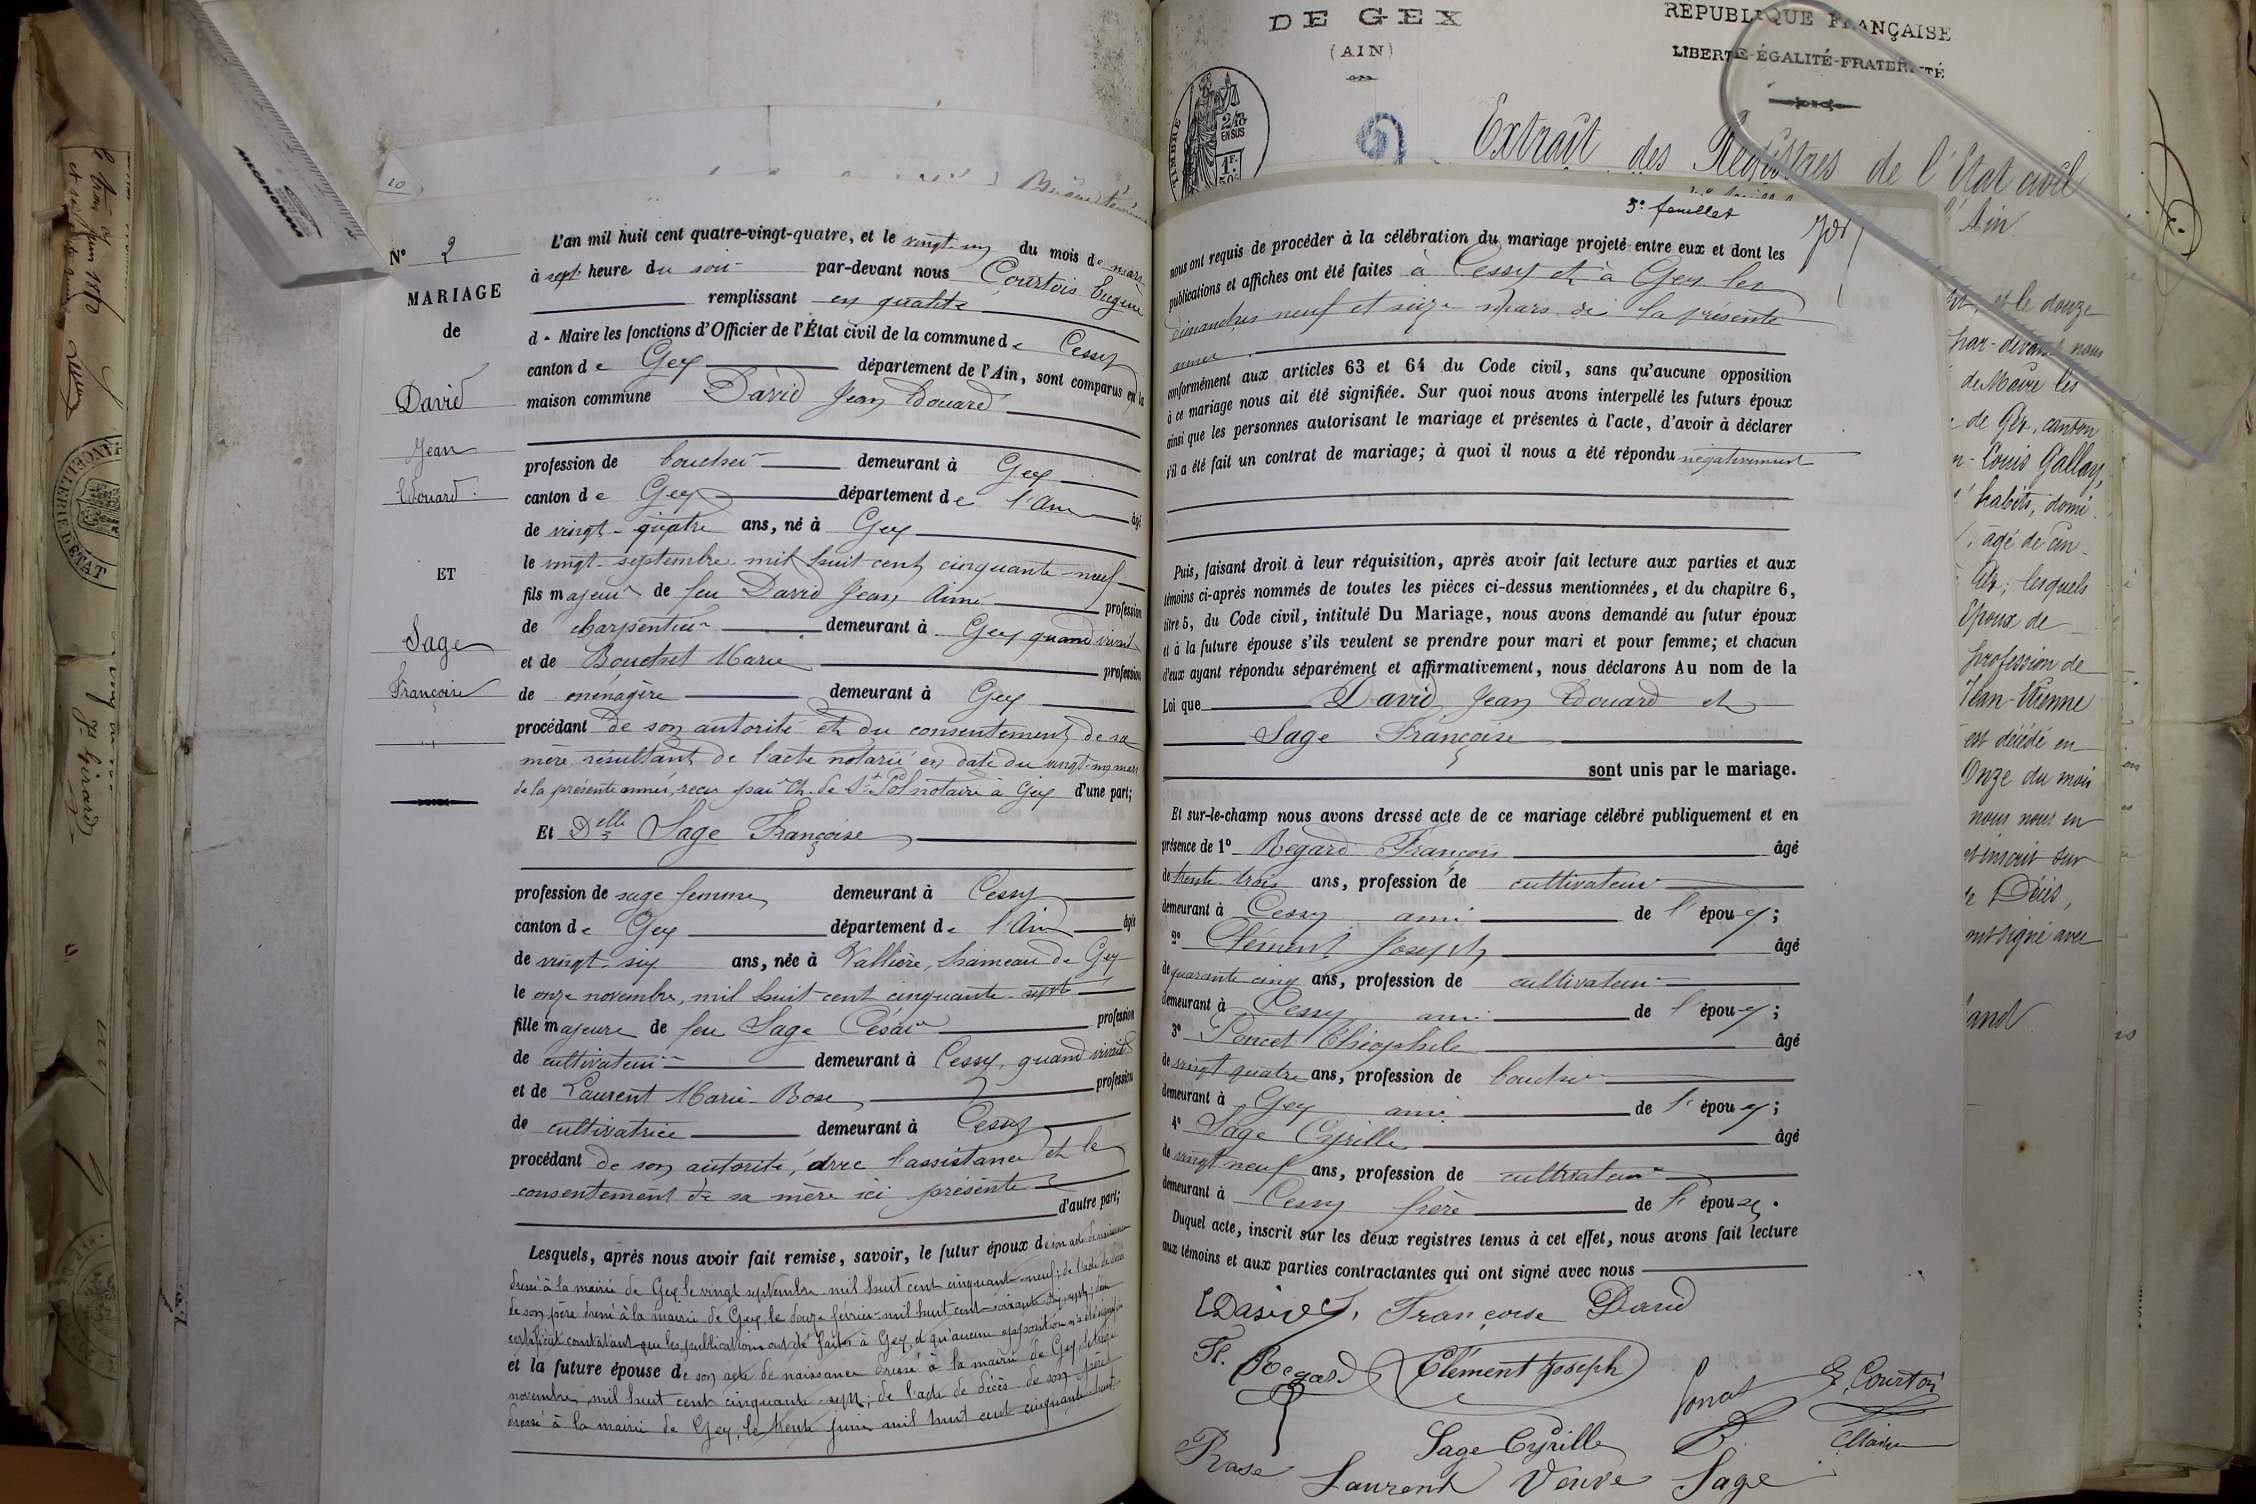 10
N° 2
MARIAGE
de
David
Jean
Edouard
ET
Sage
Françoise
L'an mil huit cent quatre-vingt-quatre, et le vingt-un du mois de mars
à sept heure du soir par-devant nous Courtois Eugène
remplissant en qualité
de Maire les fonctions d'Officier de l'État civil de la commune de Cessy
canton de Gex département de l'Ain, sont comparus en la
maison commune David Jean Edouard
profession de boucher demeurant à Gex
canton de Gex département de l'Ain âgé
de vingt-quatre ans, né à Gex
le vingt septembre mil huit cent cinquante-neuf
fils majeur de feu David Jean Aimé profession
de charpentier demeurant à Gex quand vivait
et de Bouchet Marie profession
de ménagère demeurant à Gex
procédant de son autorité et du consentement de sa
mère résultant de l'acte notarié en date du vingt-un mars
de la présente année, reçu par Ch. de St Pol notaire à Gex d'une part;
Et Delle Sage Françoise
profession de sage femme demeurant à Cessy
canton de Gex département de l'Ain âgée
de vingt-six ans, née à Vallière, hameau de Gex
le onze novembre, mil huit cent cinquante-sept
fille majeure de feu Sage César profession
de cultivateur demeurant à Cessy, quand vivait
et de Laurent Marie-Rose profession
de cultivatrice demeurant à Cessy
procédant de son autorité, avec l'assistance et le
consentement de sa mère ici présente
d'autre part;
Lesquels, après nous avoir fait remise, savoir, le futur époux de son acte de naissance
dressé à la mairie de Gex le vingt septembre mil huit cent cinquante-neuf; de l'acte de décès
de son père dressé à la mairie de Gex, le douze février mil huit cent soixante dix sept; d'un
certificat constatant que les publications ont été faites à Gex et qu'aucune opposition n'a été signifiée
et la future épouse de son acte de naissance dressé à la mairie de Gex, le treize
novembre mil huit cent cinquante-sept; de l'acte de décès de son père
dressé à la mairie de Gex, le trente juin mil huit cent cinquante-huit
DE GEX
(AIN)
RÉPUBLIQUE FRANÇAISE
LIBERTÉ-ÉGALITÉ-FRATERNITÉ
TIMBRE
2/10
EN SUS
1F.
50c
Extrait des Registres de l'Etat civil
3e feuillet
nous ont requis de procéder à la célébration du mariage projeté entre eux et dont les
publications et affiches ont été faites à Cessy et à Gex les
dimanches neuf et seize mars de la présente
année
conformément aux articles 63 et 64 du Code civil, sans qu'aucune opposition
à ce mariage nous ait été signifiée. Sur quoi nous avons interpellé les futurs époux
ainsi que les personnes autorisant le mariage et présentes à l'acte, d'avoir à déclarer
s'il a été fait un contrat de mariage; à quoi il nous a été répondu négativement
Puis, faisant droit à leur réquisition, après avoir fait lecture aux parties et aux
témoins ci-après nommés de toutes les pièces ci-dessus mentionnées, et du chapitre 6,
titre 5, du Code civil, intitulé Du Mariage, nous avons demandé au futur époux
et à la future épouse s'ils veulent se prendre pour mari et pour femme; et chacun
d'eux ayant répondu séparément et affirmativement, nous déclarons Au nom de la
Loi que David Jean Edouard et
Sage Françoise
sont unis par le mariage.
Et sur-le-champ nous avons dressé acte de ce mariage célébré publiquement et en
présence de 1° Regard François âgé
de trente trois ans, profession de cultivateur
demeurant à Cessy ami de l'époux;
2° Clément Joseph âgé
de quarante cinq ans, profession de cultivateur
demeurant à Cessy ami de l'époux;
3° Poncet Théophile âgé
de vingt quatre ans, profession de boucher
demeurant à Gex ami de l'époux;
4° Sage Cyrille âgé
de vingt neuf ans, profession de cultivateur
demeurant à Cessy frère de l'épouse.
Duquel acte, inscrit sur les deux registres tenus à cet effet, nous avons fait lecture
aux témoins et aux parties contractantes qui ont signé avec nous
David J. Françoise David
F. Regard Clément Joseph
Poncet E. Courtois
Sage Cyrille Maire
Rose Laurent Veuve Sage
l'Ain
et le douze
par-devant nous
de Maire les
de Gex, canton
Louis Gallay,
habits, domi
âgé de cin
Gex; lesquels
Epoux de
profession de
Jean-Etienne
est décédé en
Onze du mois
nous nous en
inscrit sur
de Décès,
ont signé avec